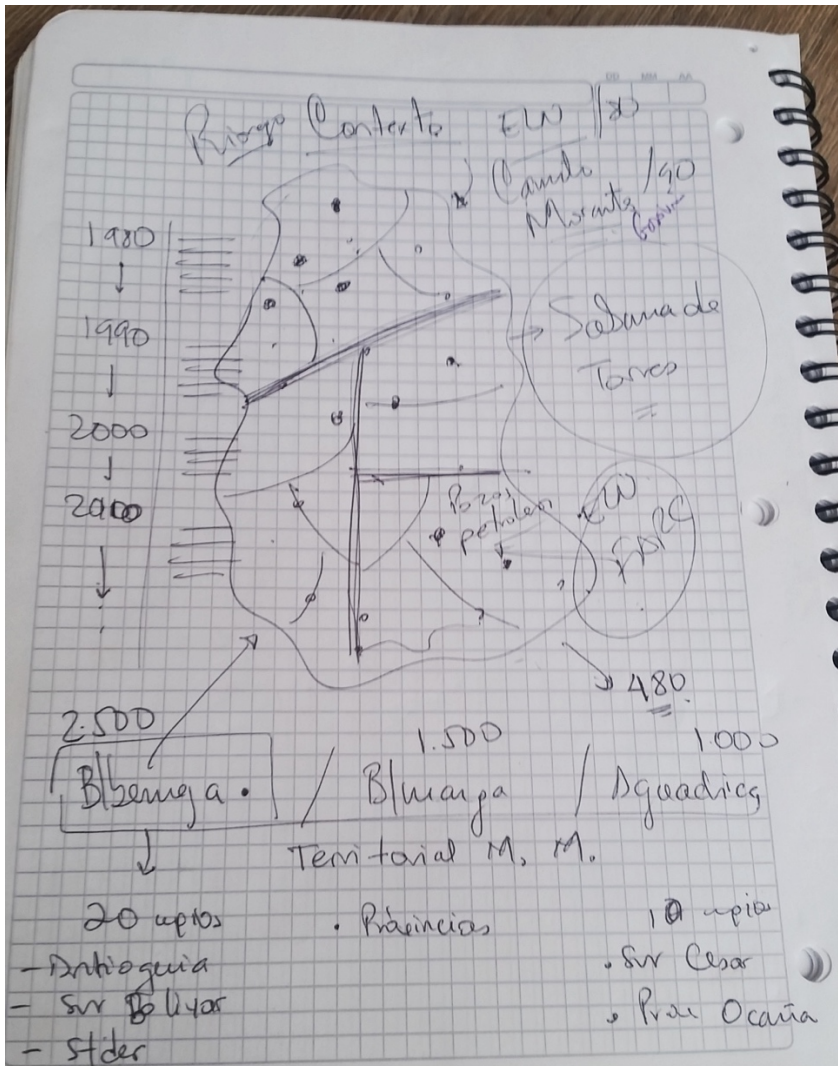 DD MM AA
Riesgo Contexto ELN /80
Camilo
Morantes /90
1980
1990
2000
Sabana de
Torres
Pozos
petroleo
ELN
FARC
480
2.500
1.500
1.000
B/bermeja. / B/manga / Aguachica
Territorial M. M.
20 mpios
- Antioquia
- Sur Bolivar
- Stder
. Provincias
10 mpios
. Sur Cesar
. Prov Ocaña